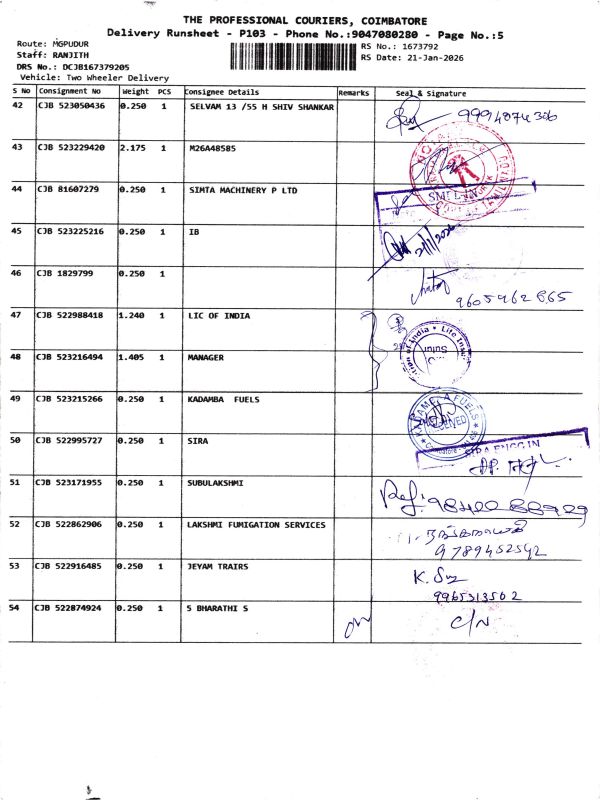 THE PROFESSIONAL COURIERS, COIMBATORE
Delivery Runsheet - P103 - Phone No.:9047080280 - Page No.:5
Route: MGPUDUR
RS No.: 1673792
Staff: RANJITH
RS Date: 21-Jan-2026
DRS No.: DCJB167379205
Vehicle: Two Wheeler Delivery
S No Consignment No Weight PCS Consignee Details Remarks Seal & Signature
42 CJB 523050436 0.250 1 SELVAM 13 /55 H SHIV SHANKAR
43 CJB 523229420 2.175 1 M26A48585
44 CJB 81607279 0.250 1 SIMTA MACHINERY P LTD
45 CJB 523225216 0.250 1 IB 21/1/2026
46 CJB 1829799 0.250 1
47 CJB 522988418 1.240 1 LIC OF INDIA
48 CJB 523216494 1.405 1 MANAGER
49 CJB 523215266 0.250 1 KADAMBA FUELS
50 CJB 522995727 0.250 1 SIRA
51 CJB 523171955 0.250 1 SUBULAKSHMI
52 CJB 522862906 0.250 1 LAKSHMI FUMIGATION SERVICES
9789452542
53 CJB 522916485 0.250 1 JEYAM TRAIRS
9965313502
54 CJB 522874924 0.250 1 S BHARATHI S C/N